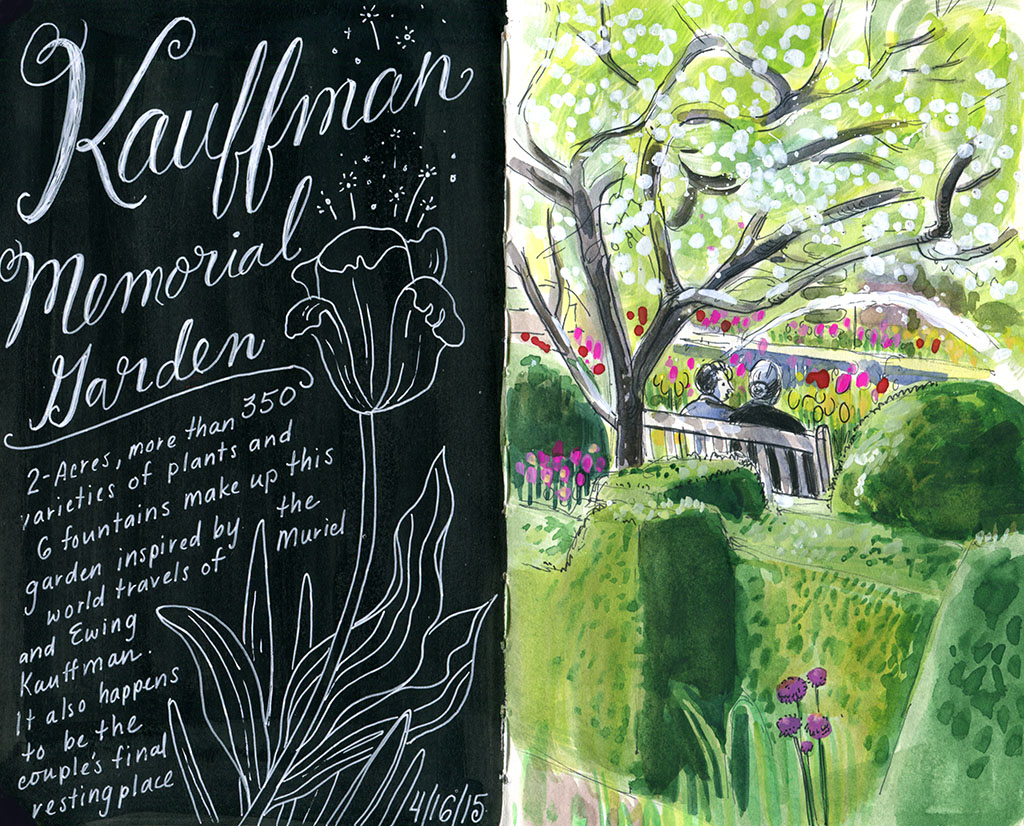 Kauffman
Memorial
Garden
2-Acres, more than 350
varieties of plants and
6 fountains make up this
garden inspired by the
world travels of Muriel
and Ewing
Kauffman.
It also happens
to be the
couple's final
resting place
4/16/15